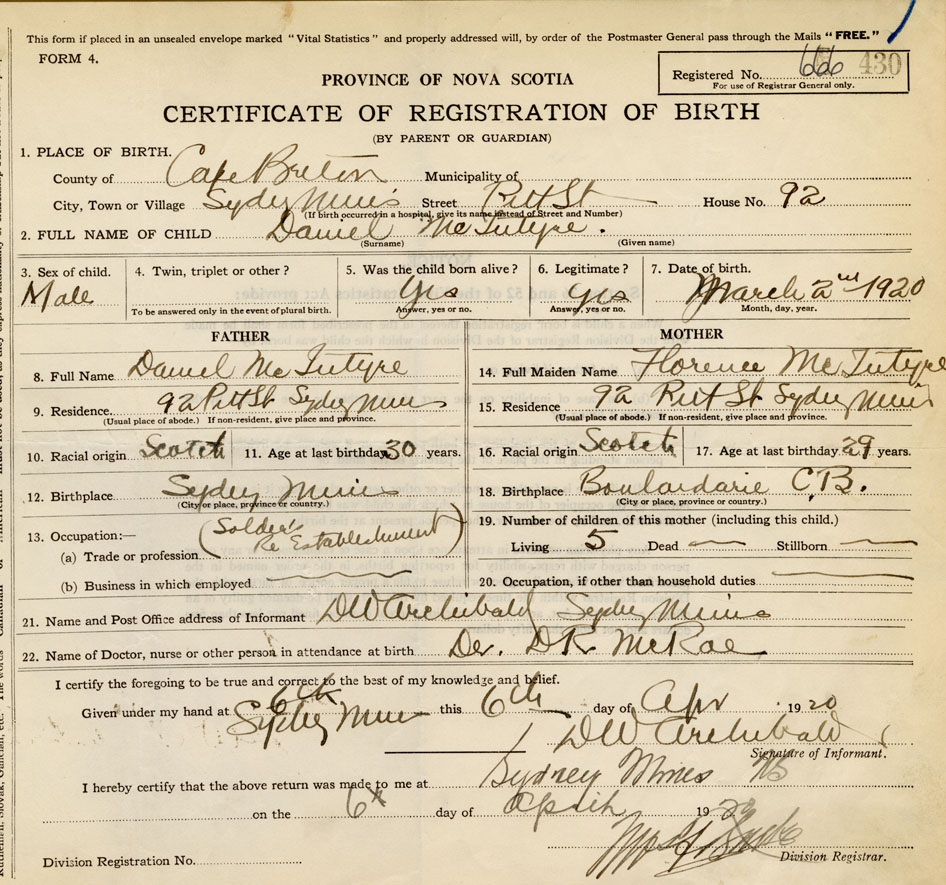 This form if placed in an unsealed envelope marked "Vital Statistics" and properly addressed will, by order of the Postmaster General pass through the Mails "FREE."
FORM 4.
Registered No. 666 430
For use of Registrar General only.
PROVINCE OF NOVA SCOTIA
CERTIFICATE OF REGISTRATION OF BIRTH
(BY PARENT OR GUARDIAN)
1. PLACE OF BIRTH.
County of Cape Breton Municipality of
City, Town or Village Sydney Mines Street Pitt St House No. 92
(If birth occurred in a hospital, give its name instead of Street and Number)
2. FULL NAME OF CHILD Daniel McIntyre.
(Surname) (Given name)
3. Sex of child. 4. Twin, triplet or other? 5. Was the child born alive? 6. Legitimate? 7. Date of birth.
Male Yes Yes March 2nd 1920
To be answered only in the event of plural birth. Answer, yes or no. Answer, yes or no. Month, day, year.
FATHER MOTHER
8. Full Name Daniel McIntyre 14. Full Maiden Name Florence McIntyre
9. Residence. 92 Pitt St Sydney Mines 15. Residence 92 Pitt St Sydney Mines
(Usual place of abode.) If non-resident, give place and province. (Usual place of abode.) If non-resident, give place and province.
10. Racial origin Scotch 11. Age at last birthday 30 years. 16. Racial origin Scotch 17. Age at last birthday 29 years.
12. Birthplace Sydney Mines 18. Birthplace Boulardarie C.B.
(City or place, province or country.) (City or place, province or country.)
13. Occupation:— (Soldier's Re Establishment) 19. Number of children of this mother (including this child.)
(a) Trade or profession Living 5 Dead — Stillborn —
(b) Business in which employed — 20. Occupation, if other than household duties —
21. Name and Post Office address of Informant DW Archibald Sydney Mines
22. Name of Doctor, nurse or other person in attendance at birth Dr. DR McRae
I certify the foregoing to be true and correct to the best of my knowledge and belief.
6th
Given under my hand at Sydney Mines this 6th day of Apr 1920
DW Archibald
Signature of Informant.
I hereby certify that the above return was made to me at Sydney Mines NS
on the 6th day of April 19
Division Registration No. Division Registrar.